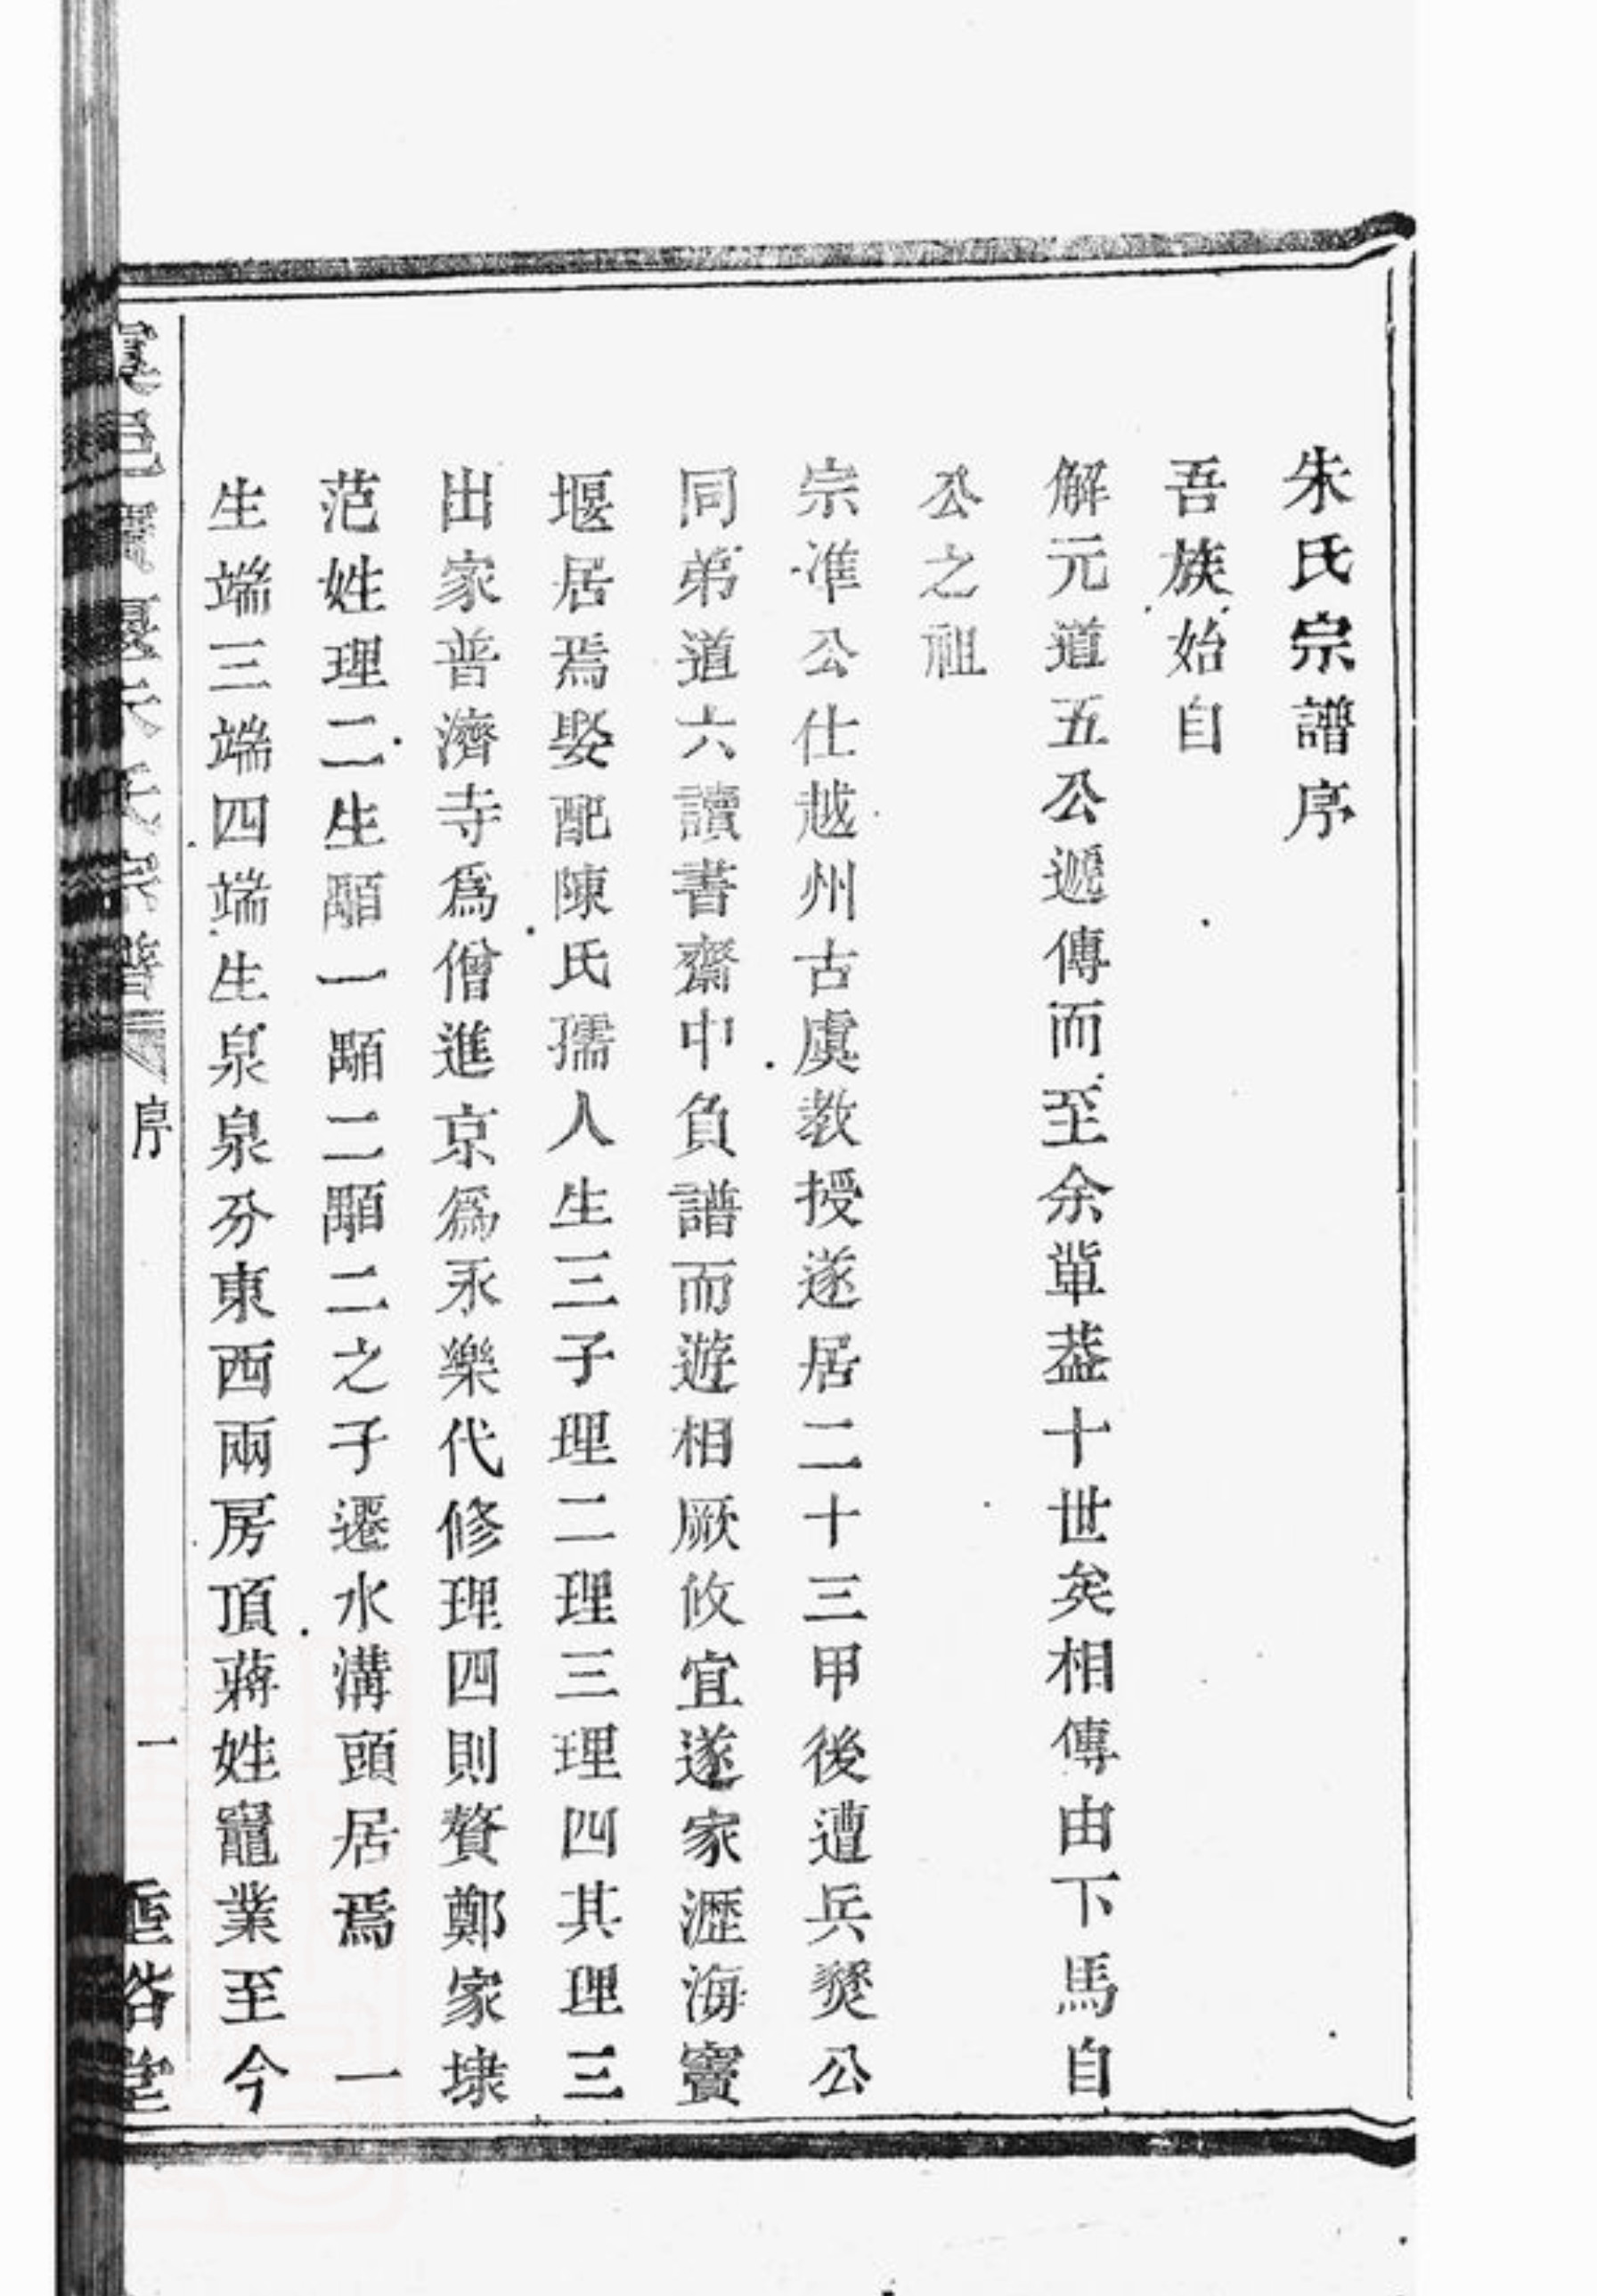 朱氏宗譜序
吾族始自
解元道五公遞傳而至余軰葢十世矣相傳由下馬自
公之祖
宗准公仕越州古虞教授遂居二十三甲後遭兵燹公
同弟道六讀書齋中負譜而遊相厥攸宜遂家瀝海竇
堰居焉娶配陳氏孺人生三子理二理三理四其理三
出家普濟寺爲僧進京爲永樂代修理四則贅鄭家埭
范姓理二生顒一顒二顒二之子遷水溝頭居焉 一
生端三端四端生泉泉分東西兩房頂蔣姓竈業至今
虞邑竇堰朱氏宗譜 序 一 堂